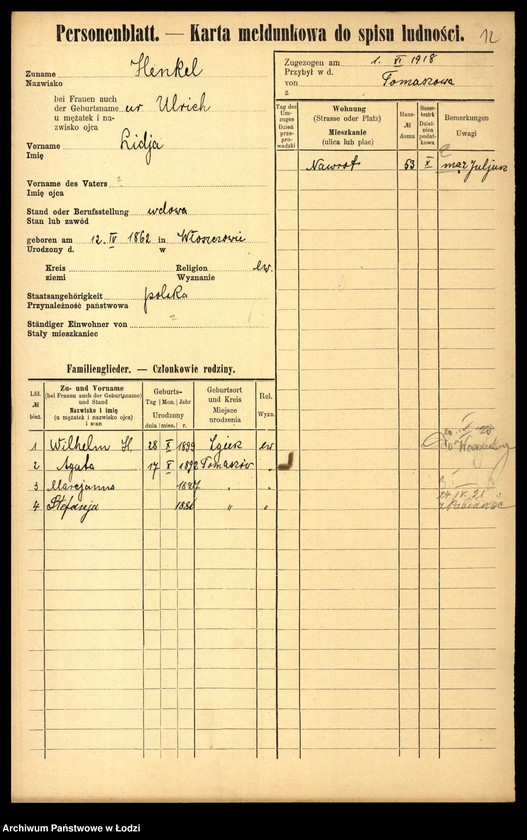 Personenblatt. — Karta meldunkowa do spisu ludności.
12
Zuname Henkel
Nazwisko
bei Frauen auch
der Geburtsname ur Ulrich
u mężatek i na-
zwisko ojca
Vorname Lidja
Imię
Vorname des Vaters
Imię ojca
Stand oder Berufsstellung wdowa
Stan lub zawód
geboren am 12. IV 1862 in Włoszczowie
Urodzony d. w
Kreis Religion ew.
ziemi Wyznanie
Staatsangehörigkeit polska
Przynależność państwowa
Ständiger Einwohner von
Stały mieszkaniec
Zugezogen am 1. XI 1918
Przybył w d.
von Tomaszowa
z
Tag des Um-zuges Dzień prze-prowadzki
Wohnung (Strasse oder Platz) Mieszkanie (ulica lub plac)
Haus-№ domu
Steuer-bezirk Dziel-nica podat-kowa
Bemerkungen Uwagi
Nawrot 53 X mąż Juljusz
Familienglieder. — Członkowie rodziny.
Lfd. № bież.
Zu- und Vorname (bei Frauen auch der Geburtsname) und Stand Nazwisko i imię (u mężatek i nazwisko ojca) i stan
Geburts- Tag Mon. Jahr Urodzony dnia mies. r.
Geburtsort und Kreis Miejsce urodzenia
Rel. Wyzn.
1 Wilhelm H. 28 X 1899 Zgierz ew
2 Agata 17 X 1892 Tomaszów "
3 Marcjanna 1887 " "
4 Stefanja 1886 " "
24 IV. 21
Archiwum Państwowe w Łodzi